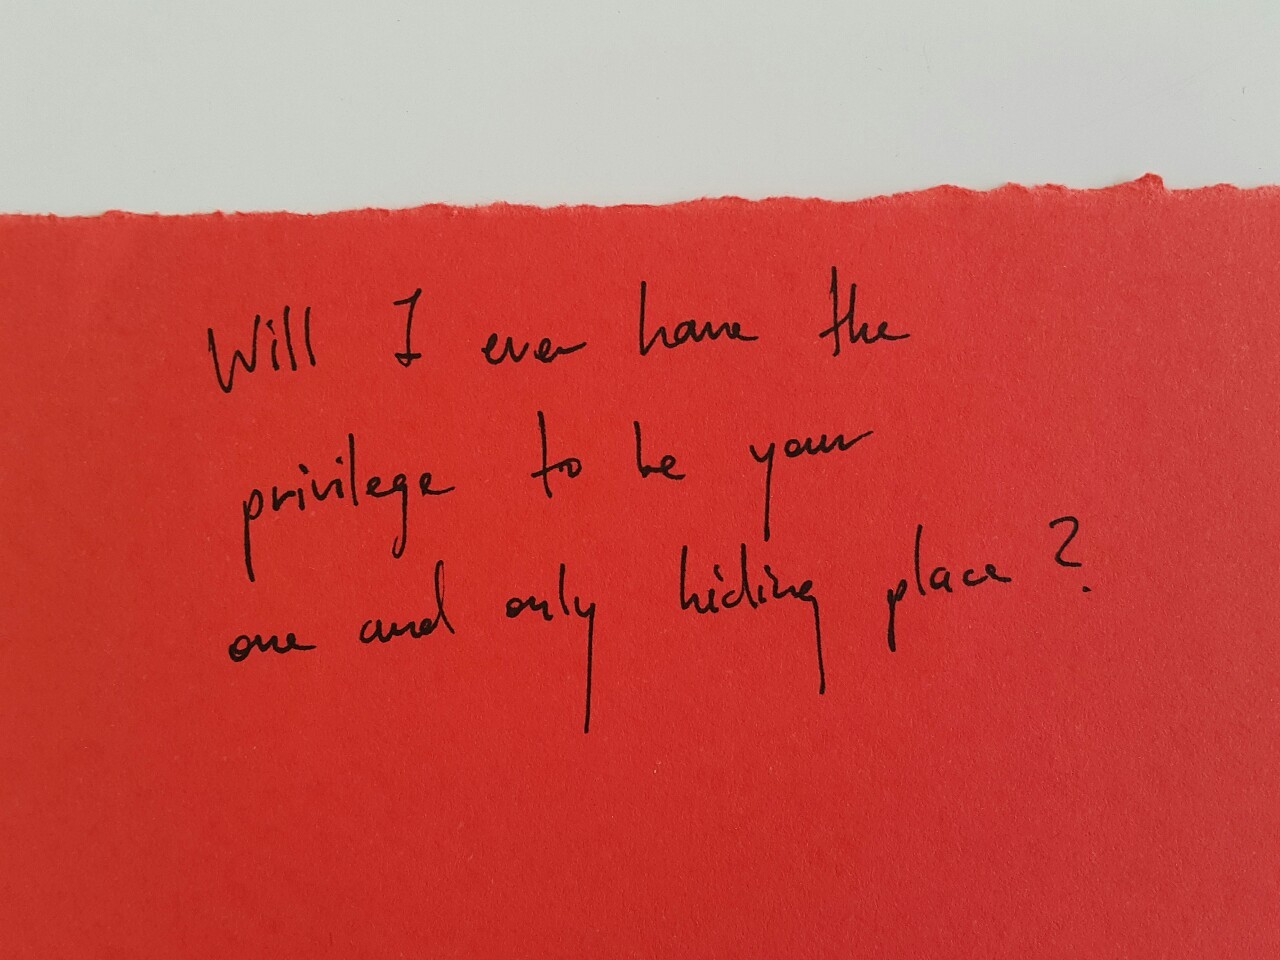 Will I ever have the
privilege to be your
one and only hiding place?